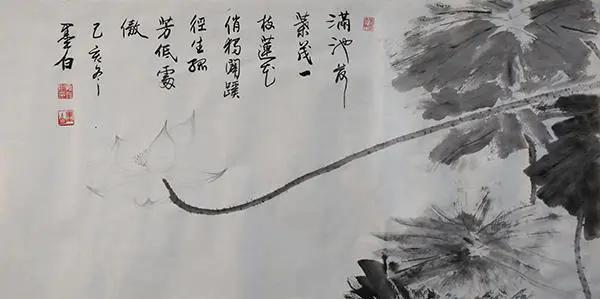 滿池荷
葉茂一
枝蓮花
俏獨開蹊
徑生孤
芳低處
傲
己亥冬
墨白